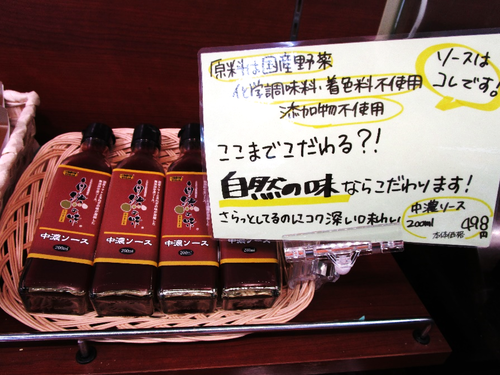 原料は国産野菜
化学調味料・着色料不使用
添加物不使用
ソースは
コレです!
ここまでこだわる?!
自然の味ならこだわります!
さらっとしてるのにコク深い味わい
中濃ソース
200ml
498円
本体価格
中濃ソース
200ml
中濃ソース
200ml
中濃ソース
200ml
中濃ソース
200ml